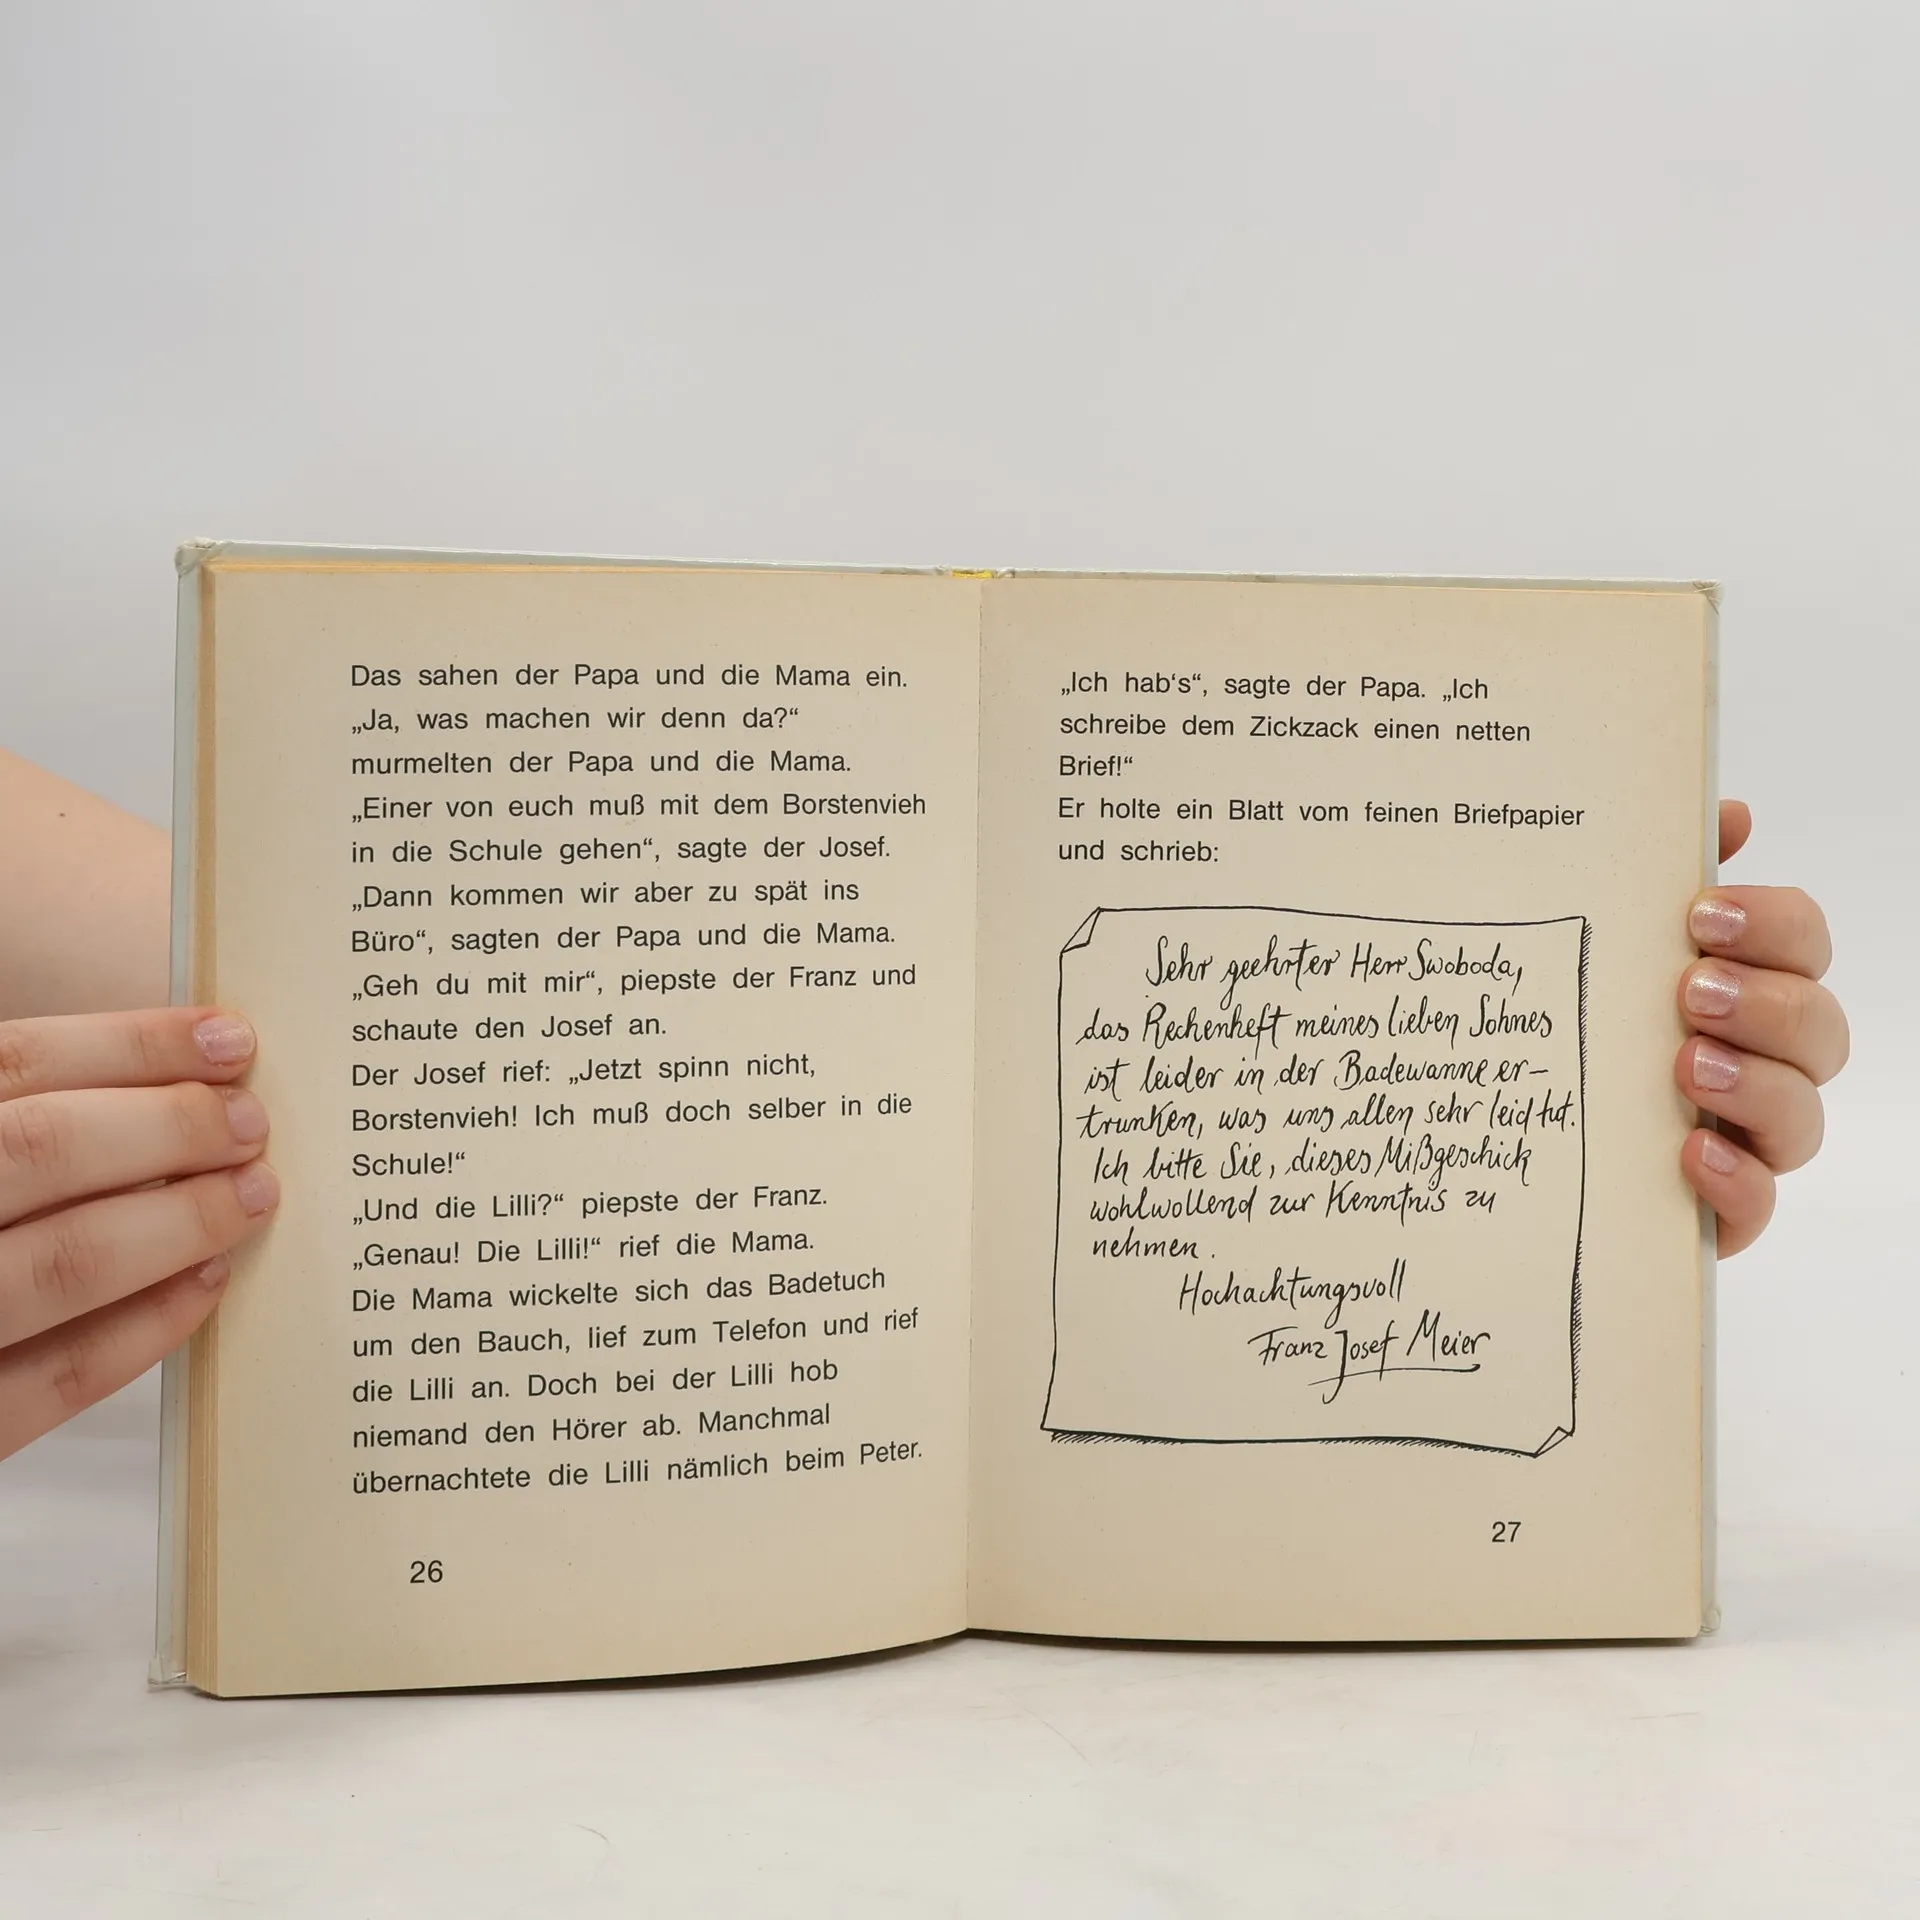 Das sahen der Papa und die Mama ein.
„Ja, was machen wir denn da?“
murmelten der Papa und die Mama.
„Einer von euch muß mit dem Borstenvieh
in die Schule gehen“, sagte der Josef.
„Dann kommen wir aber zu spät ins
Büro“, sagten der Papa und die Mama.
„Geh du mit mir“, piepste der Franz und
schaute den Josef an.
Der Josef rief: „Jetzt spinn nicht,
Borstenvieh! Ich muß doch selber in die
Schule!“
„Und die Lilli?“ piepste der Franz.
„Genau! Die Lilli!“ rief die Mama.
Die Mama wickelte sich das Badetuch
um den Bauch, lief zum Telefon und rief
die Lilli an. Doch bei der Lilli hob
niemand den Hörer ab. Manchmal
übernachtete die Lilli nämlich beim Peter.
26
„Ich hab‘s“, sagte der Papa. „Ich
schreibe dem Zickzack einen netten
Brief!“
Er holte ein Blatt vom feinen Briefpapier
und schrieb:
Sehr geehrter Herr Swoboda,
das Rechenheft meines lieben Sohnes
ist leider in der Badewanne er–
trunken, was uns allen sehr leid tut.
Ich bitte Sie, dieses Mißgeschick
wohlwollend zur Kenntnis zu
nehmen.
Hochachtungsvoll
Franz Josef Meier
27